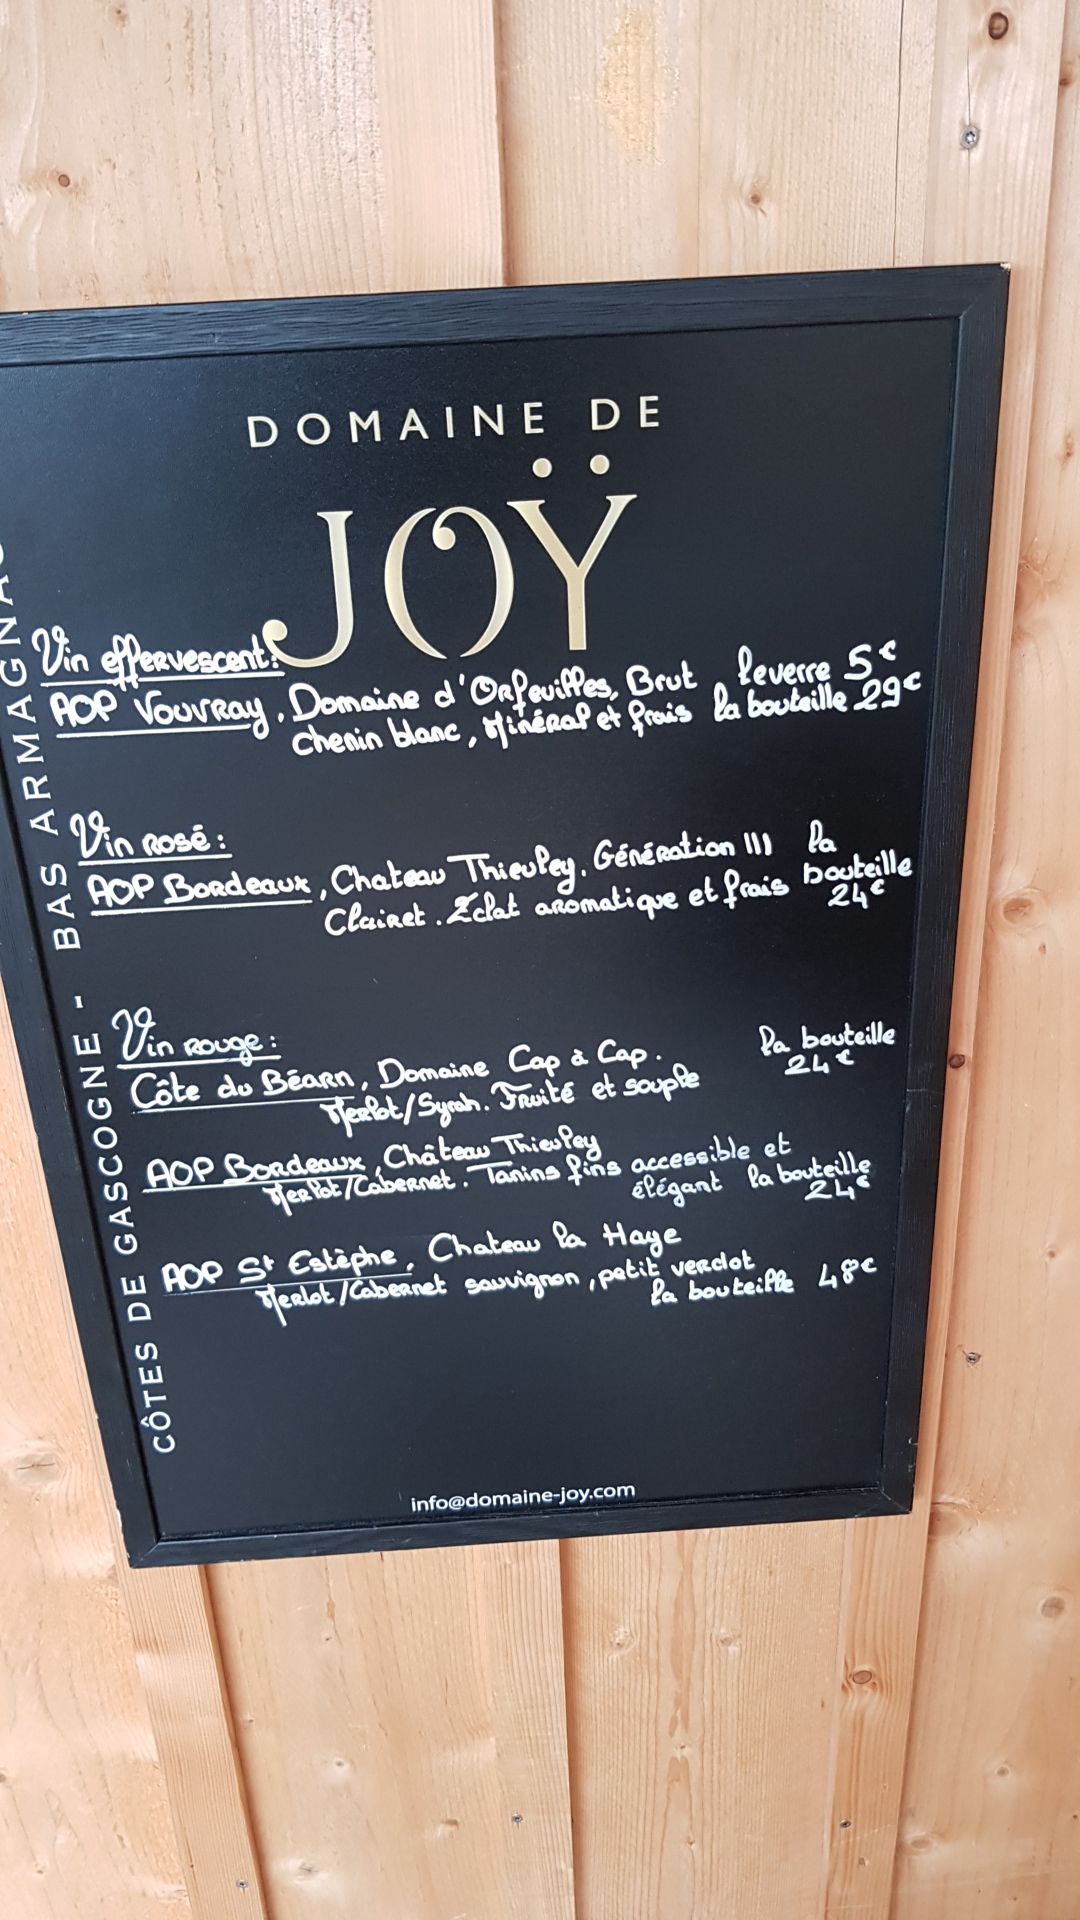 DOMAINE DE
JOŸ
Vin effervescent:
AOP Vouvray, Domaine d'Orfeuilles, Brut le verre 5€
chenin blanc, Minéral et frais la bouteille 29€
Vin rosé :
AOP Bordeaux, Chateau Thieuley. Génération III la
Clairet. Eclat aromatique et frais bouteille
24€
Vin rouge :
Côte du Béarn, Domaine Cap à Cap. la bouteille
Merlot/Syrah. Fruité et souple 24€
AOP Bordeaux, Château Thieuley
Merlot/Cabernet. Tanins fins accessible et
élégant la bouteille
24€
AOP St Estèphe, Chateau la Haye
Merlot/Cabernet sauvignon, petit verdot
la bouteille 48€
CÔTES DE GASCOGNE - BAS ARMAGNAC
info@domaine-joy.com